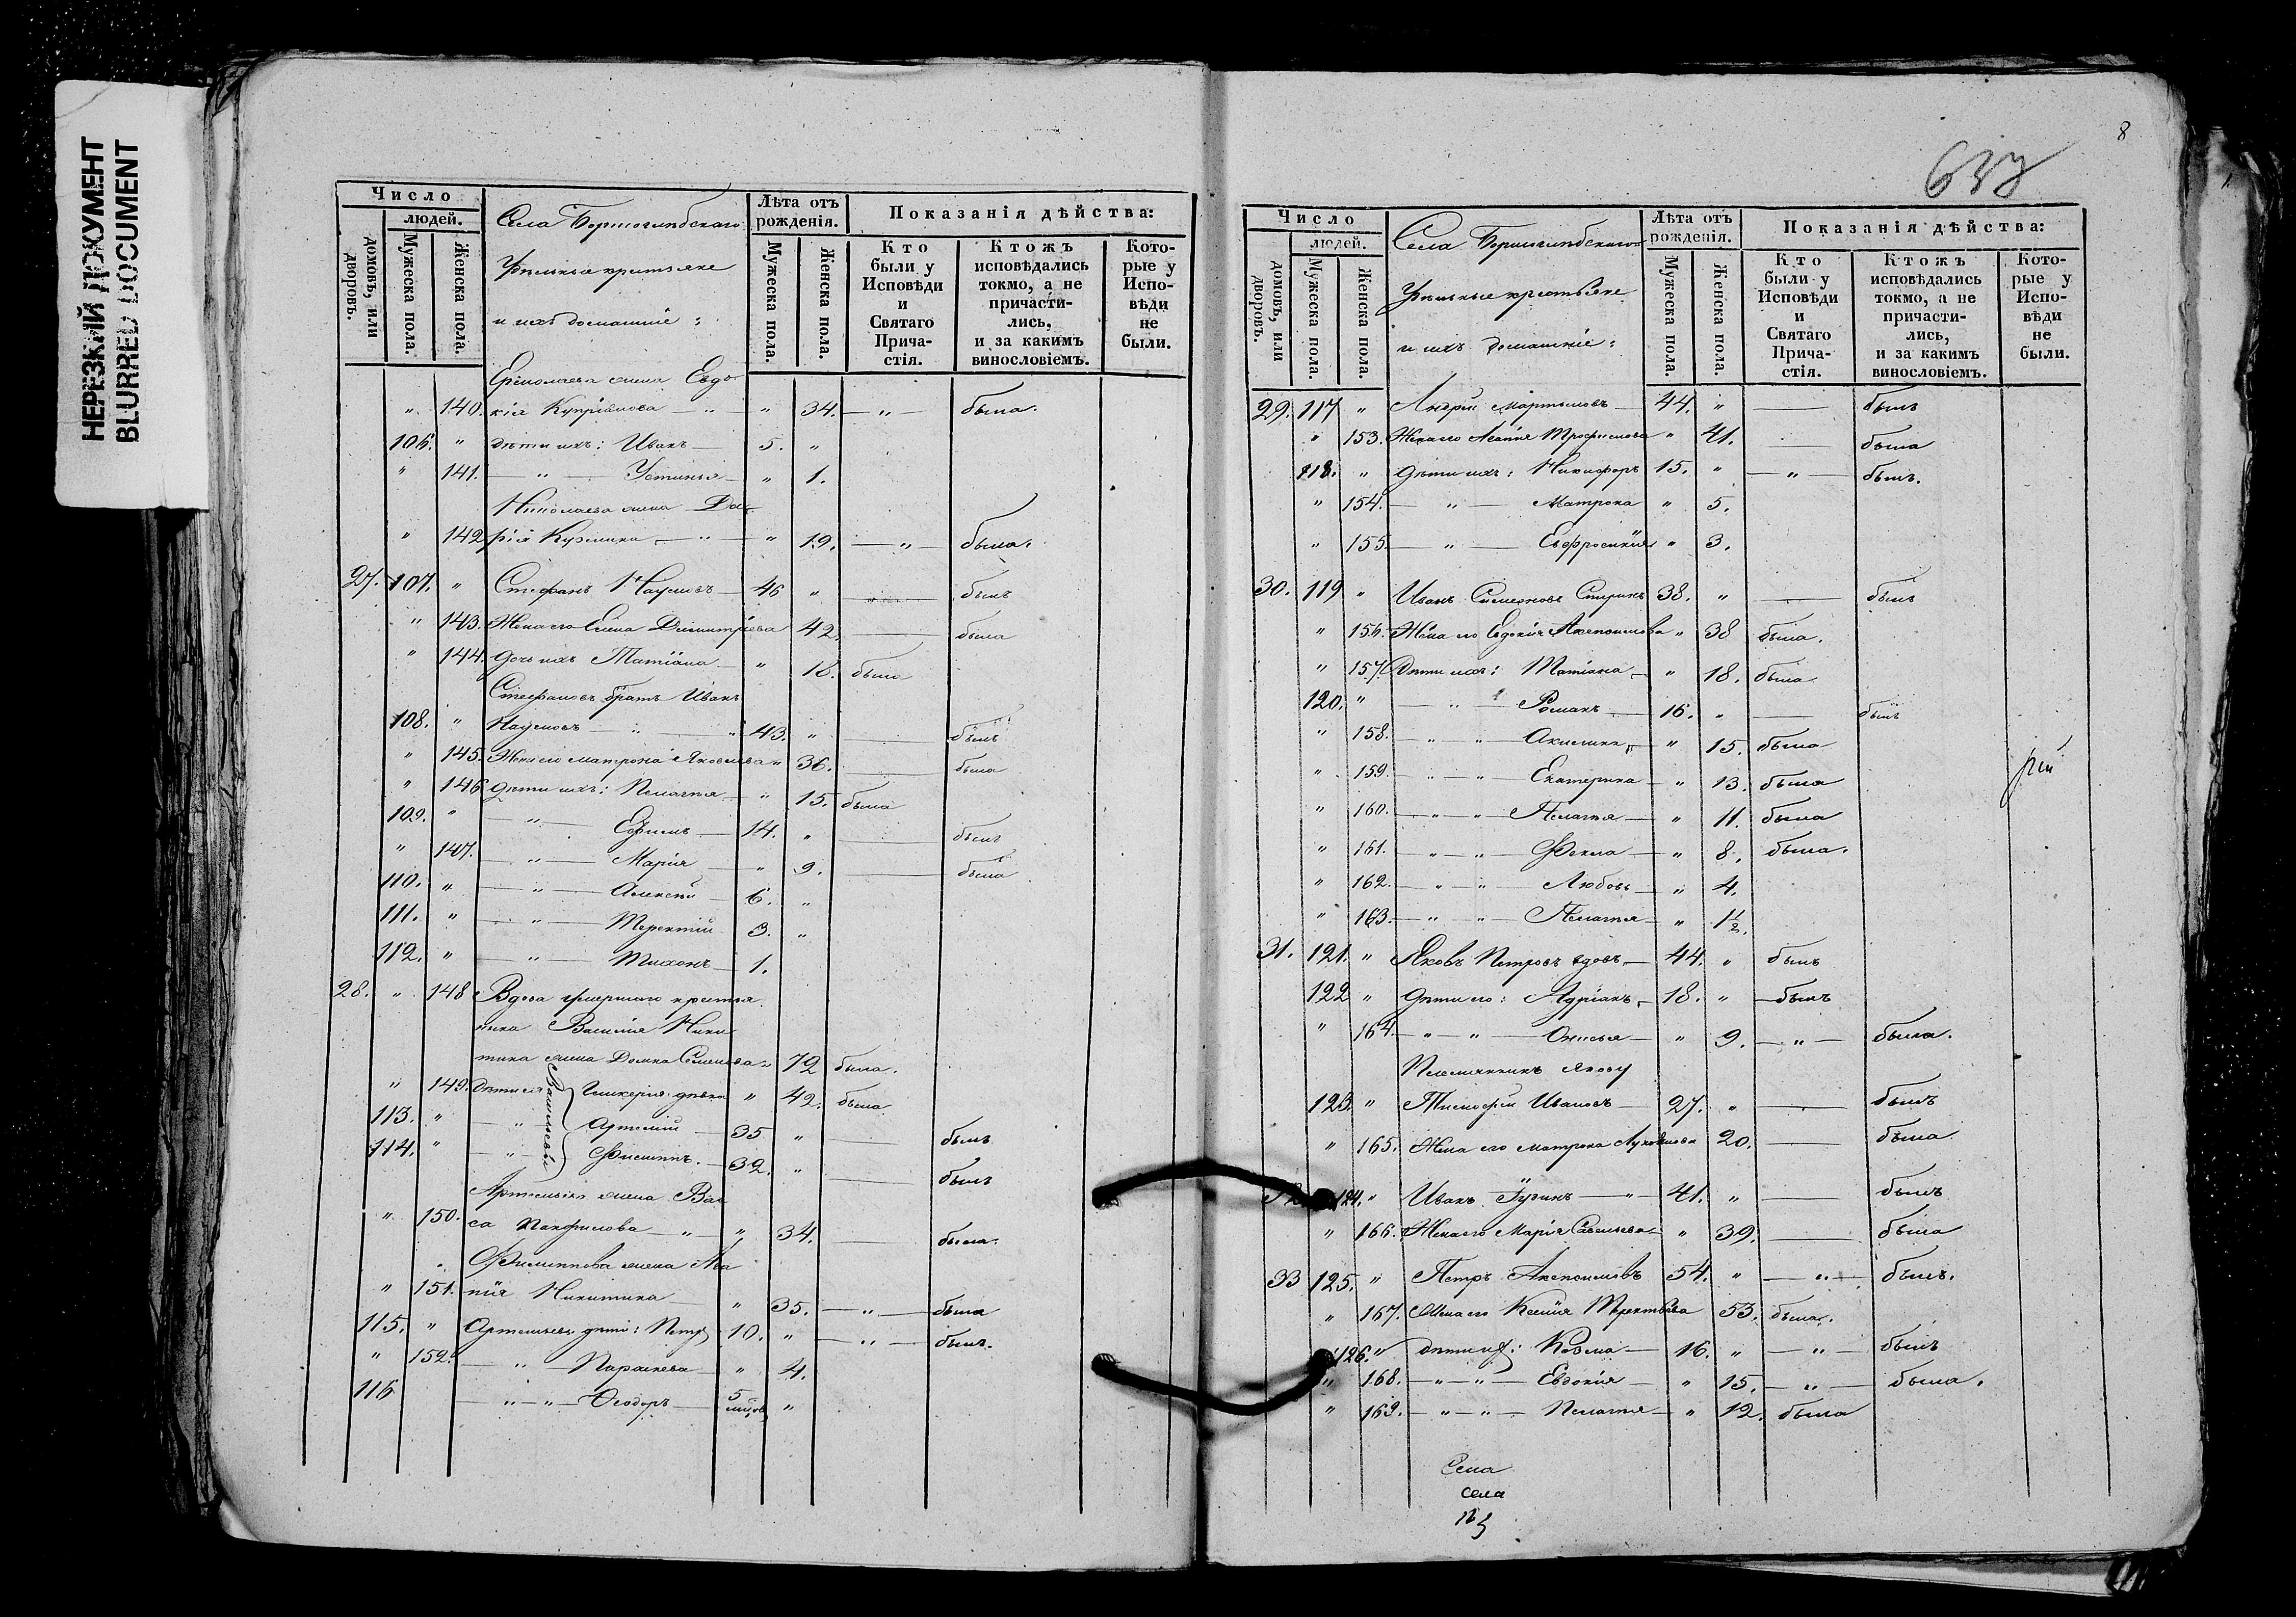 НЕРЕЗКИЙ ДОКУМЕНТ
BLURRED DOCUMENT
Число
людей.
домовъ, или дворовъ.
Мужеска пола.
Женска пола.
Села Борисоглѣбскаго
Удѣльные крестьяне
и ихъ домашніе:
Лѣта отъ рожденія.
Мужеска пола.
Женска пола.
Показанія дѣйства:
Кто были у Исповѣди и Святаго Прича- стія.
Ктожъ исповѣдались токмо, а не причасти- лись, и за какимъ винословіемъ.
Кото- рые у Испо- вѣди не были.
жена Евдо-
" 140. кія Купріянова — " — " 34. — " — была.
106. " дѣти ихъ: Иванъ — 5. "
" 141. — " — Устинья — " 1.
Николаева жена Да-
" 142 рія Кузмина — " — " 19. — " — была.
27. 107. " Стефанъ Наумовъ — 46 " — " — былъ
" 143. Жена его Елена Димитріева 42. — была
" 144. дочь ихъ Татіана — " 18. была
Стефановъ братъ Иванъ
108. " Наумовъ — " — " 43. " — былъ
" 145. Жена его Матрона Яковлева " 36. — была
" 146 дѣти ихъ: Пелагея — " 15. была
109. " — " — Ефимъ — 14. " — былъ
" 147. — " — Марія — " 9. — была
110. " — " — Алексѣй — 6. "
111. " — " — Терентій 3. "
112. " — " — Тихонъ — 1.
28. " 148 Вдова умершаго крестья-
нина Василія Ники-
тина жена Домна Семенова " 72 была.
" 149. дѣти ея Васильевы Гликерія дѣвка " 42. была.
113. " — " — Артемій — 35 " — былъ
114. " — " — Филиппъ. — 32. " — былъ
Артемьева жена Вас-
" 150. са Панфилова — " — " 34. — была.
Филиппова жена
" 151. Никитина — " 35. — " — была
115. " Артемьевы дѣти: Петръ 10. " — " — былъ.
" 152. — " — Параскева — " 4.
116 — " — " — Ѳеодоръ — 5 мѣсяц. "
8
Число
людей.
домовъ, или дворовъ.
Мужеска пола.
Женска пола.
Села Борисоглѣбскаго
Удѣльные крестьяне
и ихъ домашніе:
Лѣта отъ рожденія.
Мужеска пола.
Женска пола.
Показанія дѣйства:
Кто были у Исповѣди и Святаго Прича- стія.
Ктожъ исповѣдались токмо, а не причасти- лись, и за какимъ винословіемъ.
Кото- рые у Испо- вѣди не были.
29. 117 " Андрей Мартыновъ — 44. " — былъ
" 153. Жена его Трофимова " 41. — была
118. " дѣти ихъ: Никифоръ 15. " — " — былъ.
" 154. — " — Матрона " 5.
" 155. — " — Евфросинія " 3.
30. 119 " Иванъ Симеоновъ Спиринъ 38. " — былъ
" 156. Жена его Евдокія " 38 была.
" 157. дѣти ихъ: Татіана — " 18. была
120. " — " — Романъ — 16. " — былъ
" 158. — " — " — Акилина " 15. была
" 159. — " — " — Екатерина — " 13. была
" 160. — " — " — Пелагея — " 11. была
" 161. — " — " — Фекла — " 8. была.
" 162. — " — " — Любовь — " 4.
" 163. — " — " — Пелагея — " 1½.
31. 121. " Яковъ Петровъ вдовъ — 44. " былъ
122 " дѣти его: Адріанъ — 18. " — былъ
" 164. — " — " — Анисья — " 9. — " — была.
Племянникъ Якову
123. " Тимофей Ивановъ — 27. " — былъ
" 165. Жена его Матрона 20. — была
124. " Иванъ — " — 41. " — былъ
" 166. Жена его Марія Савельева — " 39. — была
33 125. " Петръ 54. " — " — былъ.
" 167. Жена его Ксенія Терентьева 53. была.
126. " дѣти ихъ: Козма — 16. " — " — былъ
" 168. — " — " — Евдокія — " 15. — " — была.
" 169. — " — " — Пелагея — " 12. была
Села
села